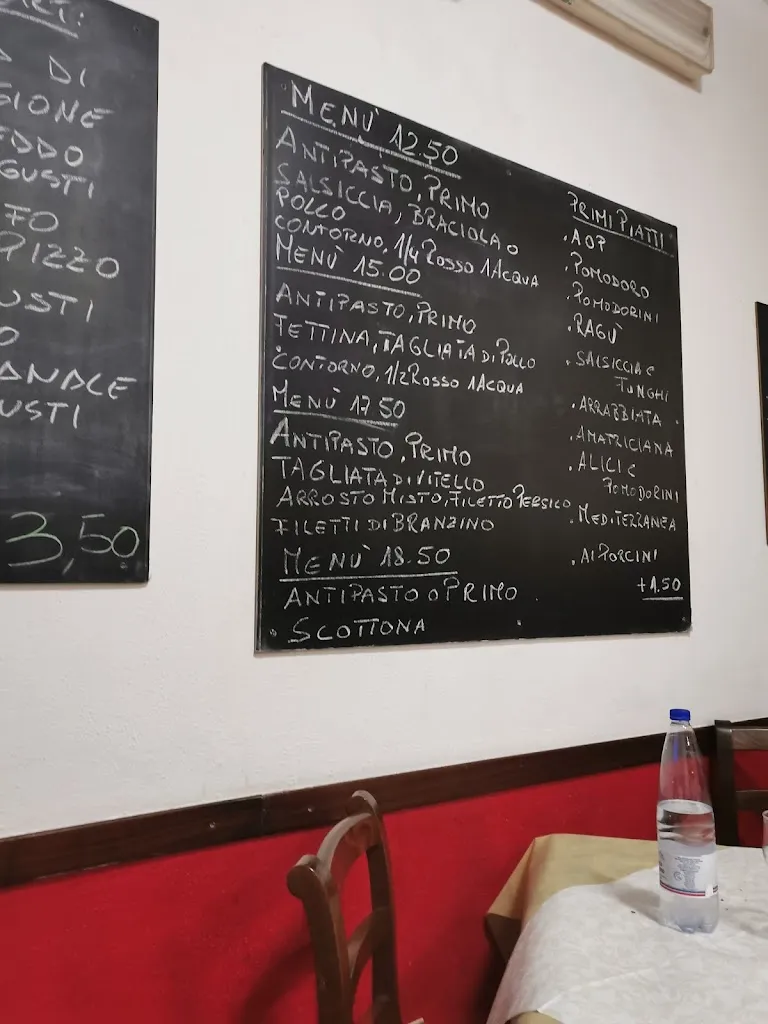 DI
GUSTI
3,50
MENÙ 12.50
ANTIPASTO, PRIMO
SALSICCIA, BRACIOLA O
POLLO
CONTORNO, 1/4 ROSSO 1 ACQUA
MENÙ 15.00
ANTIPASTO, PRIMO
FETTINA, TAGLIATA DI POLLO
CONTORNO, 1/2 ROSSO 1 ACQUA
MENÙ 17.50
ANTIPASTO, PRIMO
TAGLIATA DI VITELLO
ARROSTO MISTO, FILETTO PERSICO
FILETTI DI BRANZINO
MENÙ 18.50
ANTIPASTO O PRIMO
SCOTTONA
PRIMI PIATTI
. AOP
. POMODORO
. POMODORINI
. RAGÙ
. SALSICCIA E
FUNGHI
. ARRABBIATA
. AMATRICIANA
. ALICI E
POMODORINI
. MEDITERRANEA
. AI PORCINI
+1.50